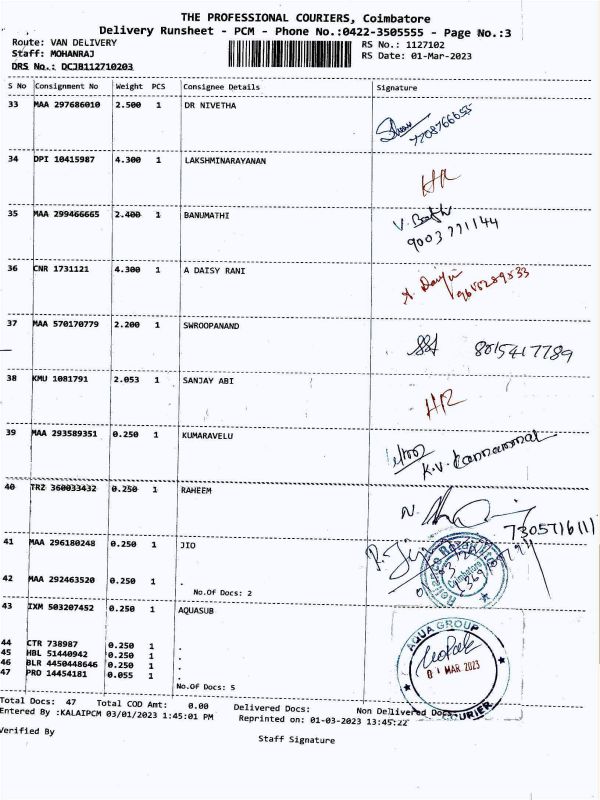 THE PROFESSIONAL COURIERS, Coimbatore
Delivery Runsheet - PCM - Phone No.:0422-3505555 - Page No.:3
Route: VAN DELIVERY
RS No.: 1127102
Staff: MOHANRAJ
RS Date: 01-Mar-2023
DRS No.: DCJB112710203
S No Consignment No Weight PCS Consignee Details Signature
33 MAA 297686010 2.500 1 DR NIVETHA
7708766655
34 DPI 10415987 4.300 1 LAKSHMINARAYANAN
HR
35 MAA 299466665 2.400 1 BANUMATHI
9003771144
36 CNR 1731121 4.300 1 A DAISY RANI
9655289533
37 MAA 570170779 2.200 1 SWROOPANAND
8015417789
38 KMU 1081791 2.053 1 SANJAY ABI
HR
39 MAA 293589351 0.250 1 KUMARAVELU
K.V. Kannammal
40 TRZ 360033432 0.250 1 RAHEEM
7305716111
41 MAA 296180248 0.250 1 JIO
42 MAA 292463520 0.250 1 .
No.Of Docs: 2
Coimbatore
43 IXM 503207452 0.250 1 AQUASUB
AQUA GROUP
44 CTR 738987 0.250 1 .
45 HBL 51440942 0.250 1 .
46 BLR 4450448646 0.250 1 .
47 PRO 14454181 0.055 1 .
01 MAR 2023
No.Of Docs: 5
COURIER
Total Docs: 47 Total COD Amt: 0.00 Delivered Docs: Non Delivered Docs:
Entered By :KALAIPCM 03/01/2023 1:45:01 PM Reprinted on: 01-03-2023 13:45:22
Verified By
Staff Signature